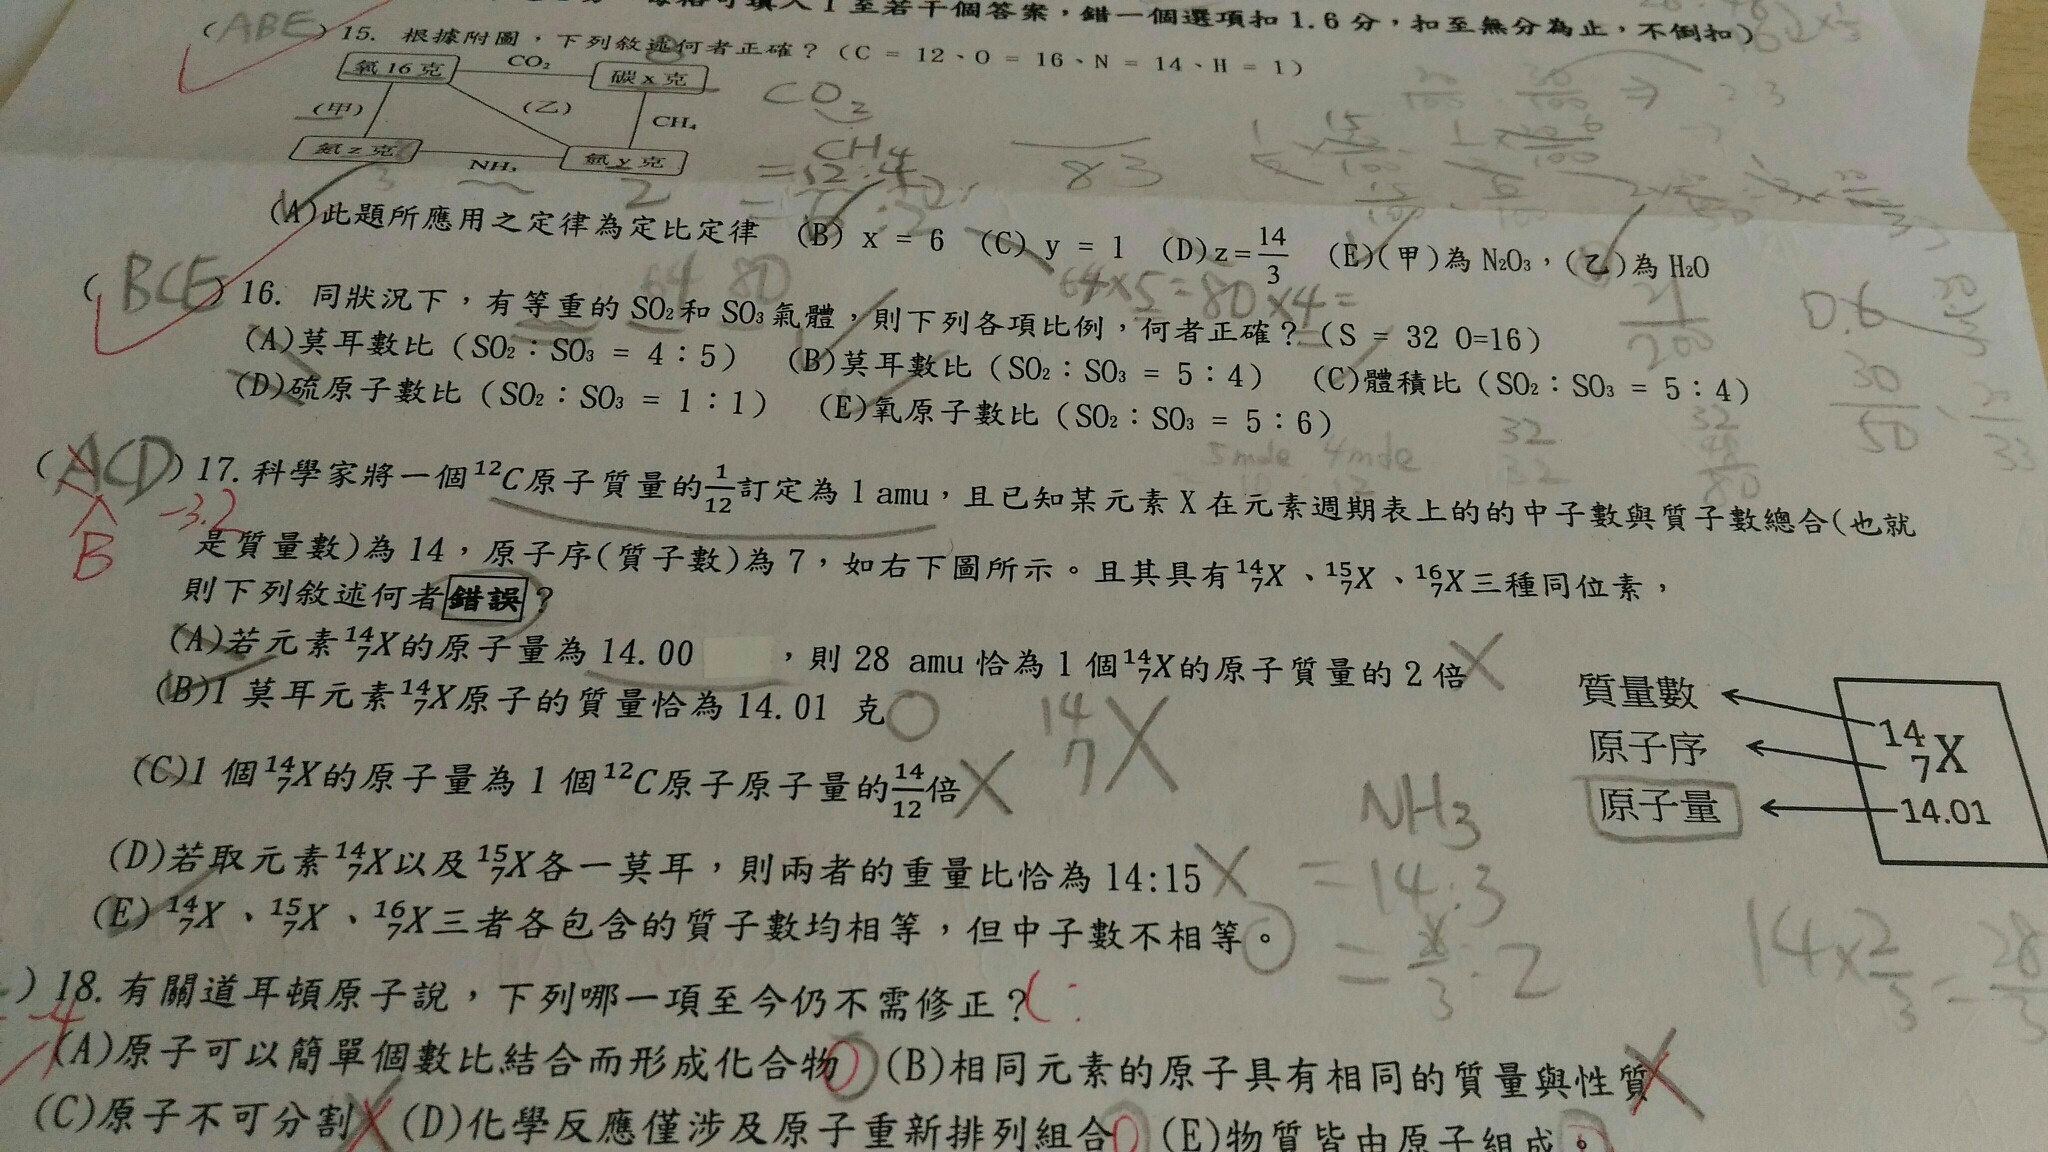 每格可填入1至若干個答案，錯一個選項扣1.6分，扣至無分為止，不倒扣)
(ABE) 15. 根據附圖，下列敘述何者正確？(C = 12、O = 16、N = 14、H = 1)
氧16克 CO₂ 碳x克
(甲) (乙) CH₄
氮z克 NH₃ 氫y克
3 2
CO₂
CH₄
= 12:4
83
(A)此題所應用之定律為定比定律 (B) x = 6 (C) y = 1 (D)z=14/3 (E)(甲)為N₂O₃，(乙)為H₂O
64 80
64×5=80×4=
21/200
0.6
30/50
(BCE) 16. 同狀況下，有等重的SO₂和SO₃氣體，則下列各項比例，何者正確？(S = 32 O=16)
(A)莫耳數比(SO₂：SO₃ = 4：5) (B)莫耳數比(SO₂：SO₃ = 5：4) (C)體積比(SO₂：SO₃ = 5：4)
(D)硫原子數比(SO₂：SO₃ = 1：1) (E)氧原子數比(SO₂：SO₃ = 5：6)
32 32
32 48 80
(ACD) 17. 科學家將一個¹²C原子質量的1/12訂定為1 amu，且已知某元素X在元素週期表上的的中子數與質子數總合(也就
-3.2
B
是質量數)為14，原子序(質子數)為7，如右下圖所示。且其具有¹⁴₇X、¹⁵₇X、¹⁶₇X三種同位素，
則下列敘述何者錯誤？
(A)若元素¹⁴₇X的原子量為14.00 ，則28 amu恰為1個¹⁴₇X的原子質量的2倍
(B)1莫耳元素¹⁴₇X原子的質量恰為14.01 克
(C)1個¹⁴₇X的原子量為1個¹²C原子原子量的14/12倍
¹⁴₇X
質量數 ¹⁴₇X
原子序
原子量 14.01
NH₃
= 14:3
14×2/3=28/3
(D)若取元素¹⁴₇X以及¹⁵₇X各一莫耳，則兩者的重量比恰為14:15
(E) ¹⁴₇X、¹⁵₇X、¹⁶₇X三者各包含的質子數均相等，但中子數不相等。
) 18. 有關道耳頓原子說，下列哪一項至今仍不需修正？
-4
(A)原子可以簡單個數比結合而形成化合物 (B)相同元素的原子具有相同的質量與性質
(C)原子不可分割 (D)化學反應僅涉及原子重新排列組合 (E)物質皆由原子組成。